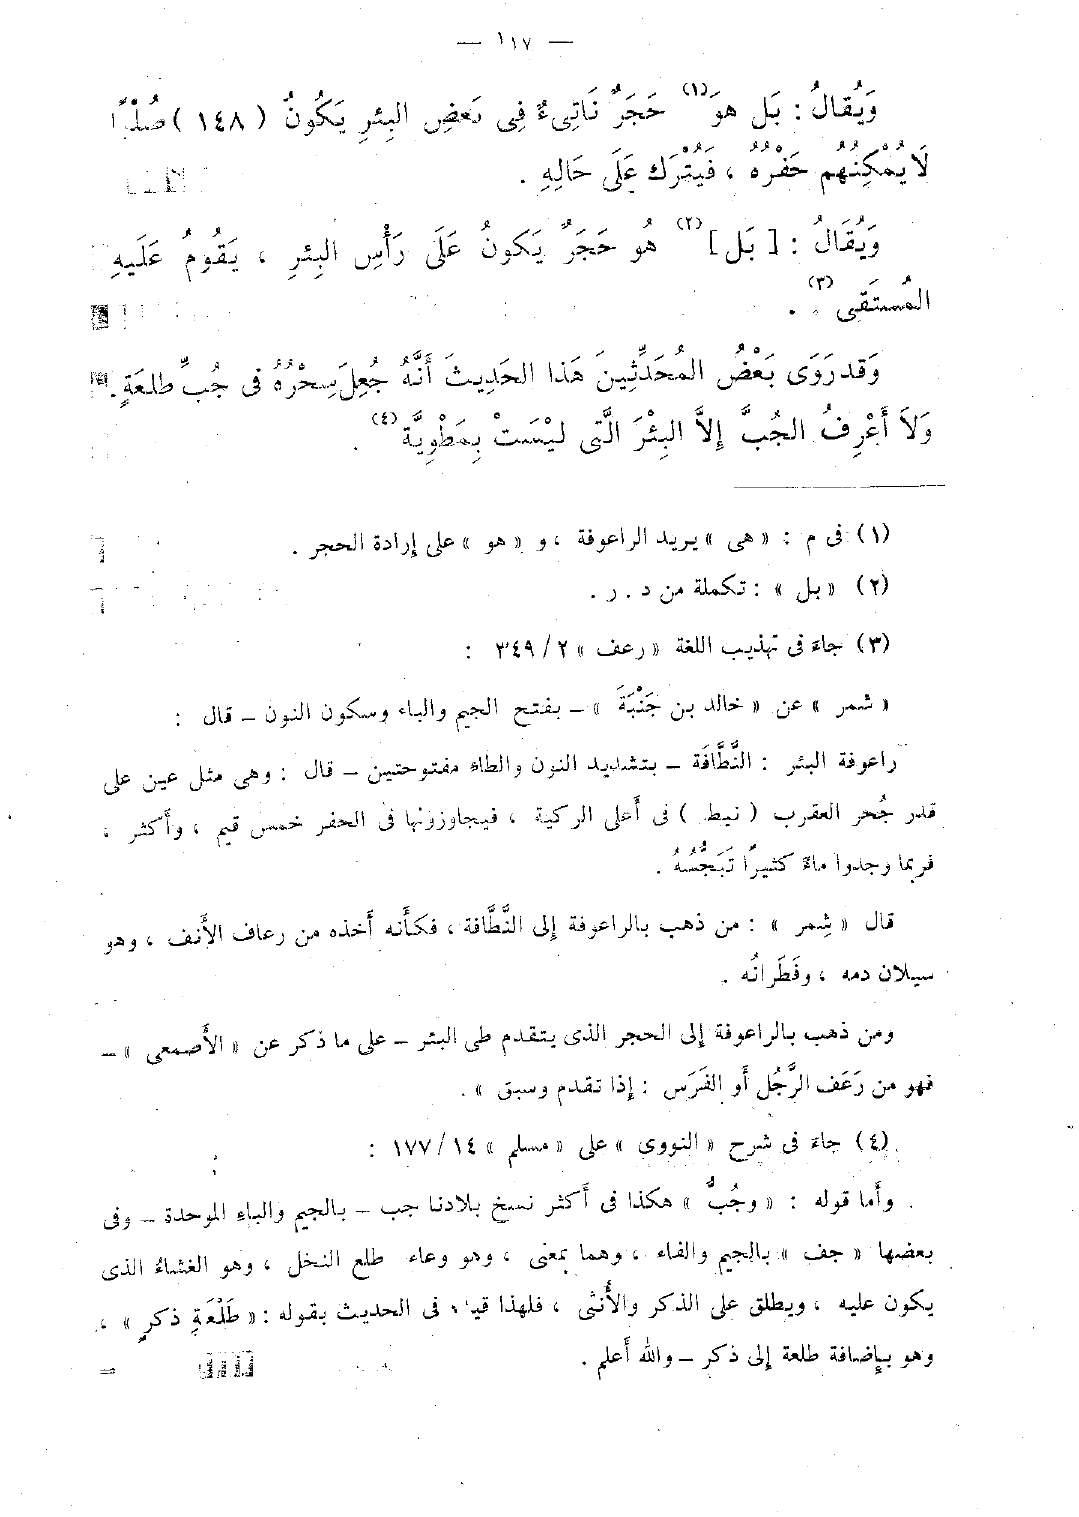 — ١١٧ —
وَيُقالُ : بَل هوَ (١) حَجَرٌ نَاتِىءٌ فِى بَعضِ البِئرِ يَكُونُ ( ١٤٨ ) صُلْبًا
لَا يُمْكِنُهُم حَفْرُهُ ، فَيُتْرَك عَلَى حَالِهِ .
وَيُقَالُ : [ بَل ] (٢) هُو حَجَرٌ يَكونُ عَلَى رَأْسِ البِئرِ ، يَقُومُ عَلَيهِ
المُستَقِى (٣) .
وَقد رَوَى بَعْضُ المُحَدِّثِينَ هَذا الحَدِيثَ أَنَّهُ جُعِلَ سِحْرُهُ فى جُبِّ طلعَةٍ .
وَلَا أَعْرِفُ الجُبَّ إِلاَّ البِئْرَ الَّتى ليْسَتْ بِمَطْوِيَّة (٤) .
(١) فى م : « هى » يريد الراعوفة ، و « هو » على إرادة الحجر .
(٢) « بل » : تكملة من د . ر .
(٣) جاءَ فى تهذيب اللغة « رعف » ٣٤٩/٢ :
« شمر » عن « خالد بن جَنْبَةَ » – بفتح الجيم والباء وسكون النون – قال :
راعوفة البئر : النَّطَّافَة – بتشديد النون والطاء مفتوحتين – قال : وهى مثل عين على
قدر جُحر العقرب ( نيط ) فى أَعلى الركية ، فيجاوزونها فى الحفر خمس قيم ، وأَكثر ،
فربما وجدوا ماءً كثيرًا تَبَجُّسُهُ .
قال « شِمر » : من ذهب بالراعوفة إلى النَّطَّافة ، فكأَنه أَخذه من رعاف الأَنف ، وهو
سيلان دمه ، وقَطَرانُه .
ومن ذهب بالراعوفة إلى الحجر الذى يتقدم طى البئر – على ما ذكر عن « الأَصمعى » –
فهو من رَعَف الرَّجُل أَو الفَرَس : إذا تقدم وسبق » .
(٤) جاءَ فى شرح « النووى » على « مسلم » ١٧٧/١٤ :
وأَما قوله : « وجُبُّ » هكذا فى أَكثر نسخ بلادنا جب – بالجيم والباء الموحدة – وفى
بعضها « جف » بالجيم والفاء ، وهما بمعنى ، وهو وعاء طلع النخل ، وهو الغشاءُ الذى
يكون عليه ، ويطلق على الذكر والأُنثى ، فلهذا فى الحديث بقوله : « طَلْعَةِ ذكرٍ » ،
وهو بإضافة طلعة إلى ذكر – والله أَعلم .
=